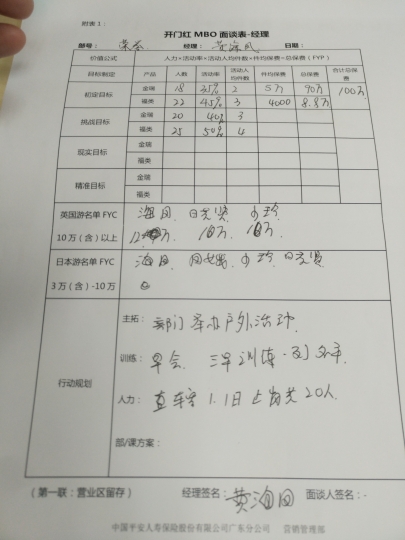 附表1：
开门红 MBO 面谈表-经理
部号： 荣 经理： 黄海凤 日期：
价值公式 人力×活动率×活动人均件数×件均保费=总保费（FYP）
目标制定 产品 人数 活动率 活动人均件数 件均保费 总保费 合计总保费
初定目标 金瑞 18 35% 2 5万 90万 100万
福类 22 45% 3 4000 8.8万
挑战目标 金瑞 20 40% 3
福类 25 50% 4
现实目标 金瑞
福类
精准目标 金瑞
福类
英国游名单 FYC 海凤
10万（含）以上 12 万 10万 10万
日本游名单 FYC 海凤
3万（含）-10万
行动规划
主拓： 部门举办户外活动
训练： 早会 三早训练
人力： 直辖 1.1日上岗 20人
部/课方案：
（第一联：营业区留存） 经理签名： 黄海凤 面谈人签名：
中国平安人寿保险股份有限公司广东分公司 营销管理部